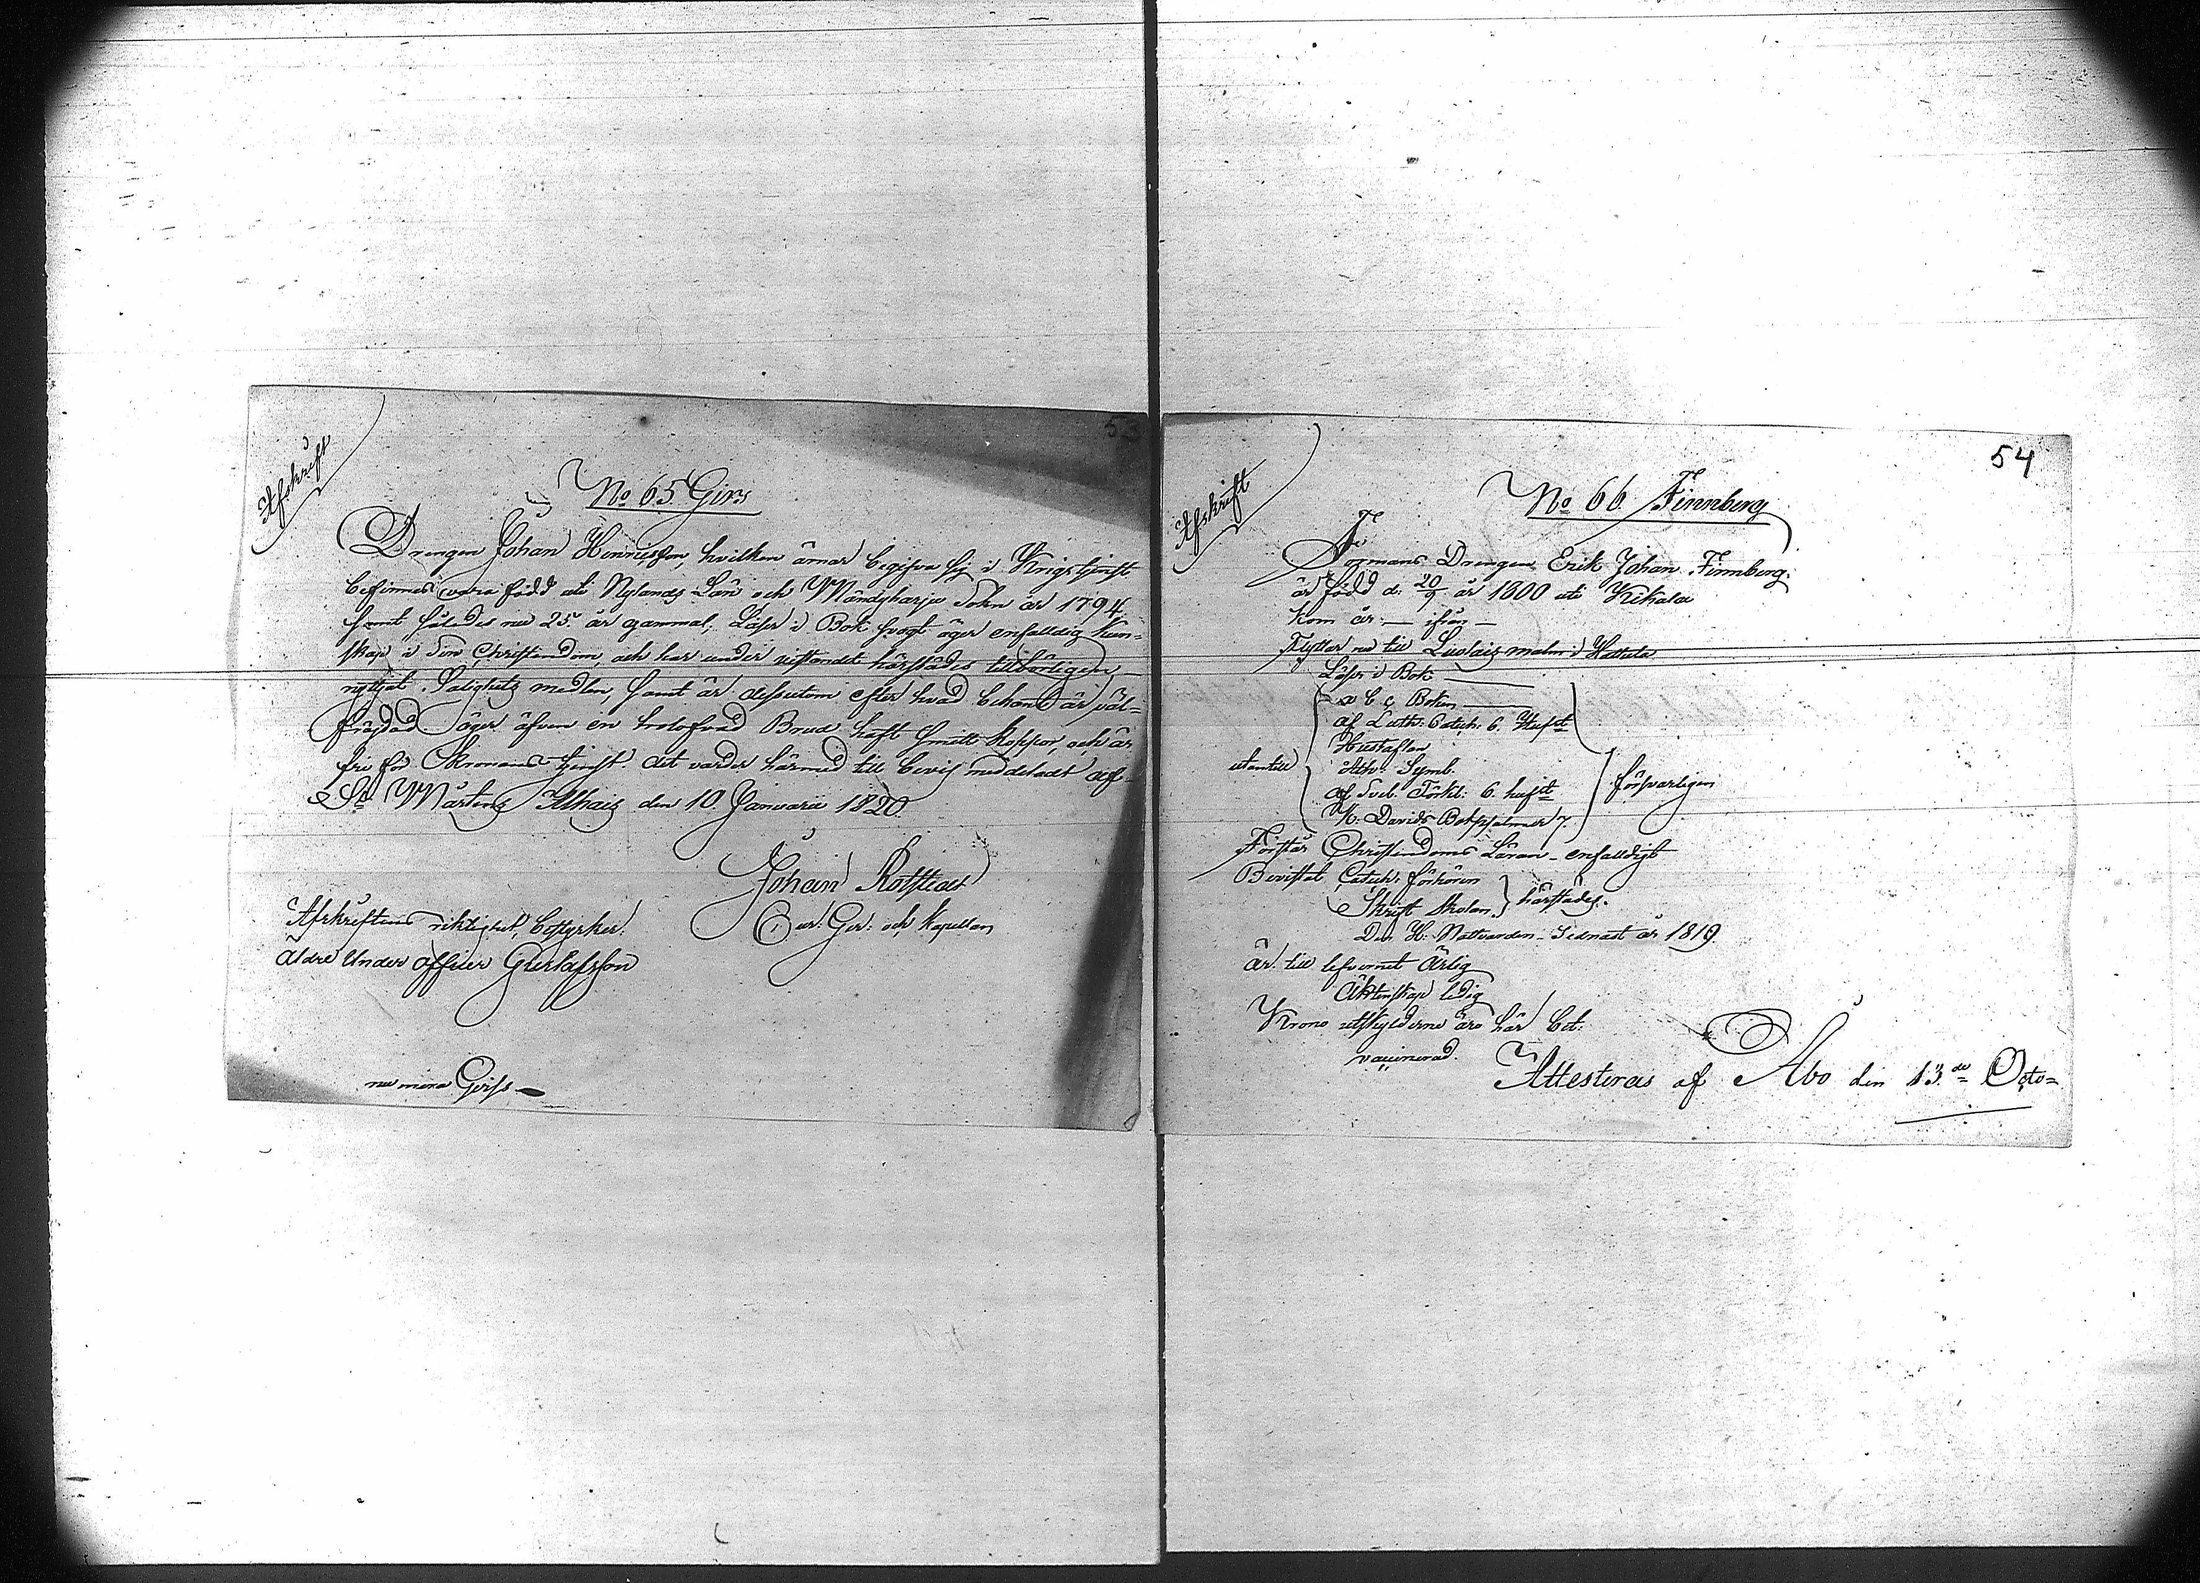 53
Afskrift
No 65 Girs
Drengen Johan Henricsson, hvilken ämar begifva sig i Krigstjenst
befinnes vara född uti Nylands Län och Mändsharju Sokn år 1794,
samt således nu 25 år gammal; Läser i Bok svagt äger enfalldig kun-
skap i sin Christendom, och har under vistandet härstädes tillbörligen
nyttjat Salighets medlen, samt är dessutom efter hvad bekant är väl-
frägdad äger äfven en trolofvad Brud haft Smitt koppor, och är
fri för Kronans tjenst. det varder härmed till bevis meddeladt af
St Mårtens den 10 Januarii 1820.
Johan
Cur: Ger: och Kapellan
Afskriftens riktighet, bestyrker:
Äldre Under officer Gustafsson
nu mera Girss
54
Afskrift
No 66. Finnberg
Drengen Erik Johan Finnberg.
är född d. 20/9 år 1800 uti Kikala
Kom år — ifrån —
Flyttar nu till malm i Hattula
Läser i Bok
a b c Boken
af Luth: Catech: 6. Hufst
Hustaflan
utantill Ath: Symb. försvarligen
af Sveb. Förkl: 6. hufst
K: Davids Botpsalmer 7.
Förstår Christendoms Läran enfalldigt
Bevistat Catech: förhören
Skrift skolan härstädes.
Den H: Nattvarden Sednast år 1819.
är till lefvernet Ärlig
Äktenskap ledig
Krono utskylderne äro här bet:
vaccinerad.
Attesteras af Åbo den 13de Octo=